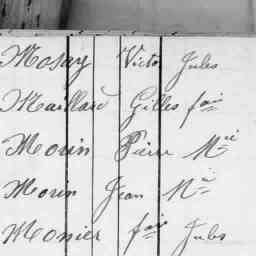 Mosay Victor Jules
Maillard Gilles fois
Morin Pierre Mie
Morin Jean Mie
Monier fois Jules